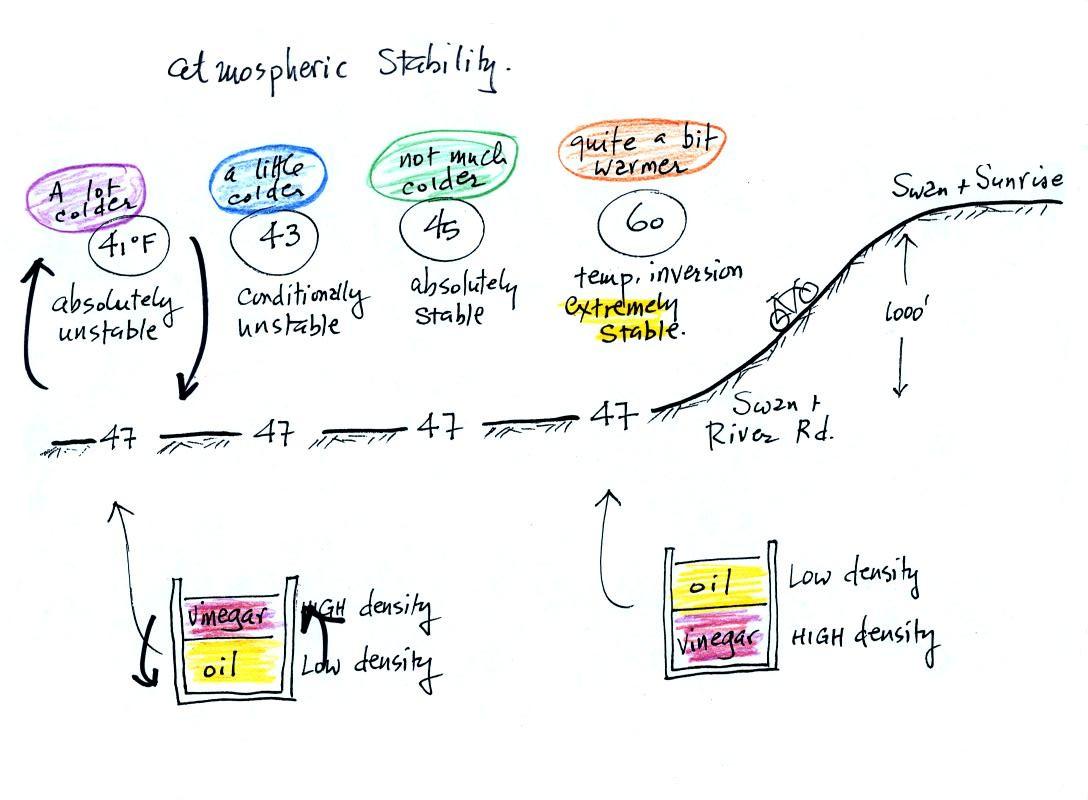 atmospheric Stability.
A lot
colder
41°F
absolutely
unstable
a little
colder
43
conditionally
unstable
not much
colder
45
absolutely
stable
quite a bit
warmer
60
temp. inversion
extremely
stable.
Swan + Sunrise
1000'
Swan +
River Rd.
47
47
47
47
vinegar
oil
HIGH density
Low density
oil
vinegar
Low density
HIGH density